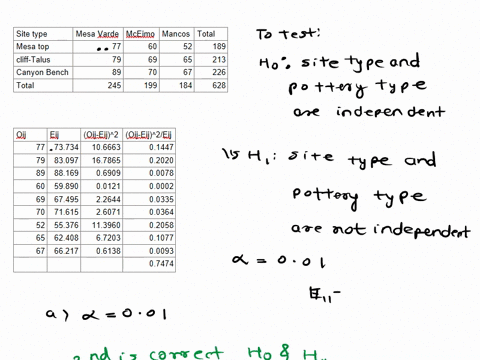 Site type Mesa Varde McEimo Mancos Total
Mesa top 77 60 52 189
cliff-Talus 79 69 65 213
Canyon Bench 89 70 67 226
Total 245 199 184 628
To test:
H0: site type and
pottery type
are independent
Oij Eij (Oij-Eij)^2 (Oij-Eij)^2/Eij
77 73.734 10.6663 0.1447
79 83.097 16.7865 0.2020
89 88.169 0.6909 0.0078
60 59.890 0.0121 0.0002
69 67.495 2.2644 0.0335
70 71.615 2.6071 0.0364
52 55.376 11.3960 0.2058
65 62.408 6.7203 0.1077
67 66.217 0.6138 0.0093
0.7474
Vs H1: site type and
pottery type
are not independent
α = 0.01
E11=
a) α = 0.01
2nd is correct H0 & H1